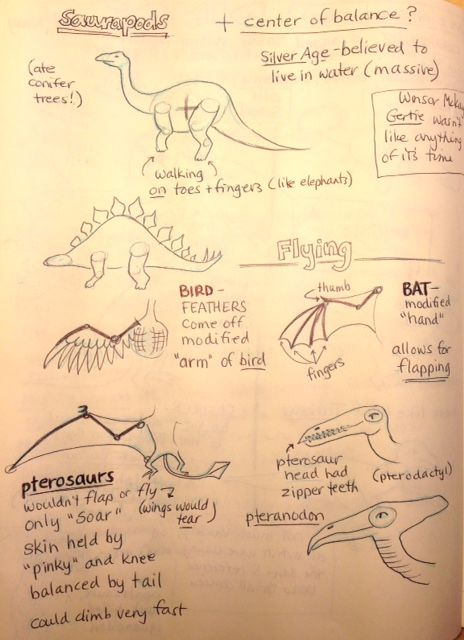 Saurapods
+ center of balance?
(ate
conifer
trees!)
Silver Age - believed to
live in water (massive)
Winsor McKay
Gertie wasn't
like anything
of its time
walking
on toes + fingers (like elephants)
Flying
BIRD -
FEATHERS
come off
modified
"arm" of bird
thumb
fingers
BAT -
modified
"hand"
allows for
flapping
pterosaurs
wouldn't flap or fly
only "soar" (wings would
tear)
skin held by
"pinky" and knee
balanced by tail
could climb very fast
pterosaur
head had
zipper teeth
(pterodactyl)
pteranodon